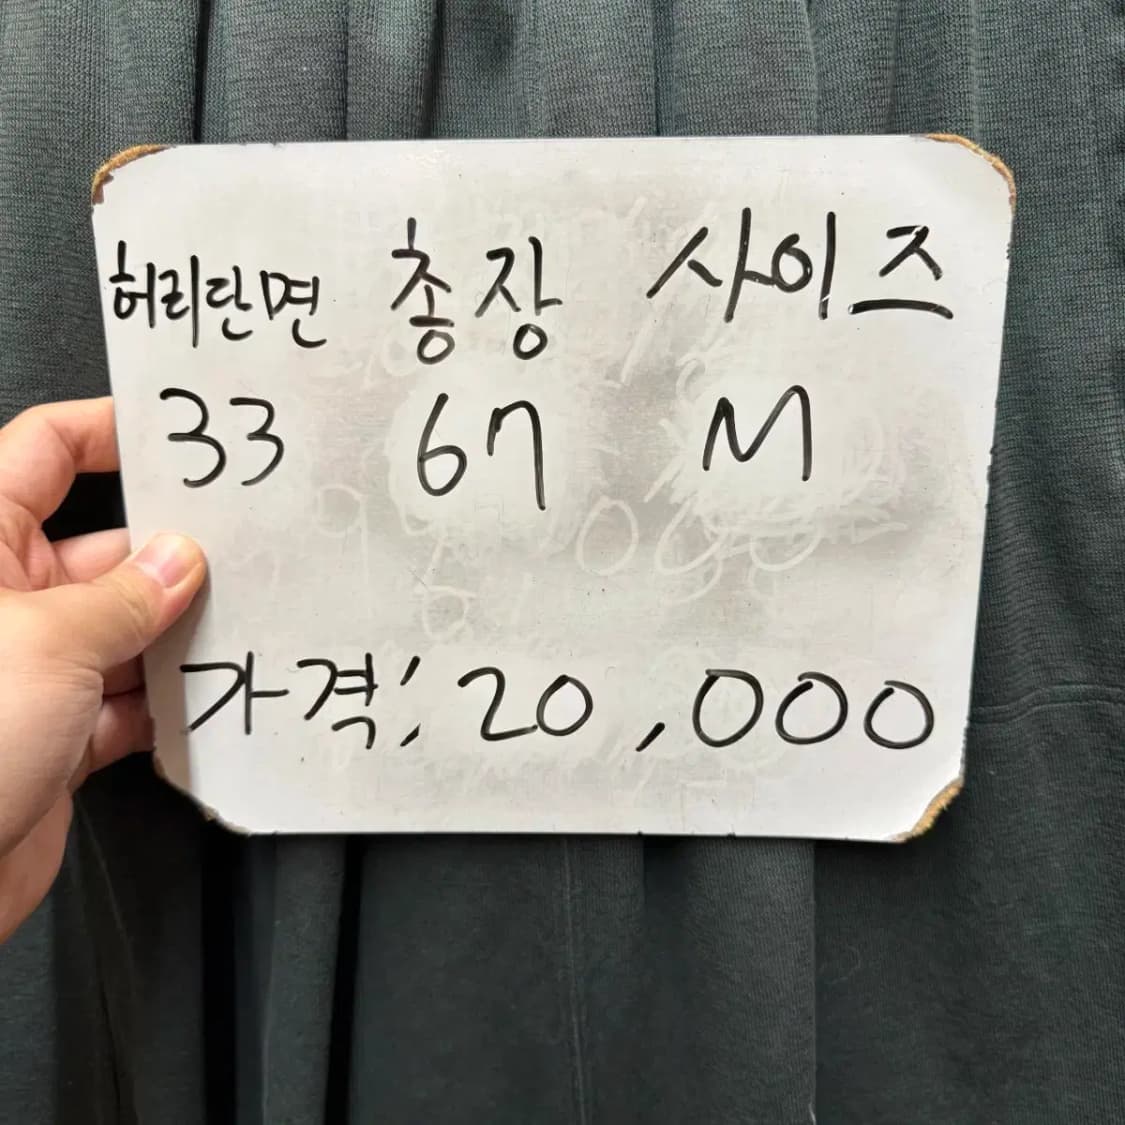 허리단면 총장 사이즈
33 67 M
가격: 20,000